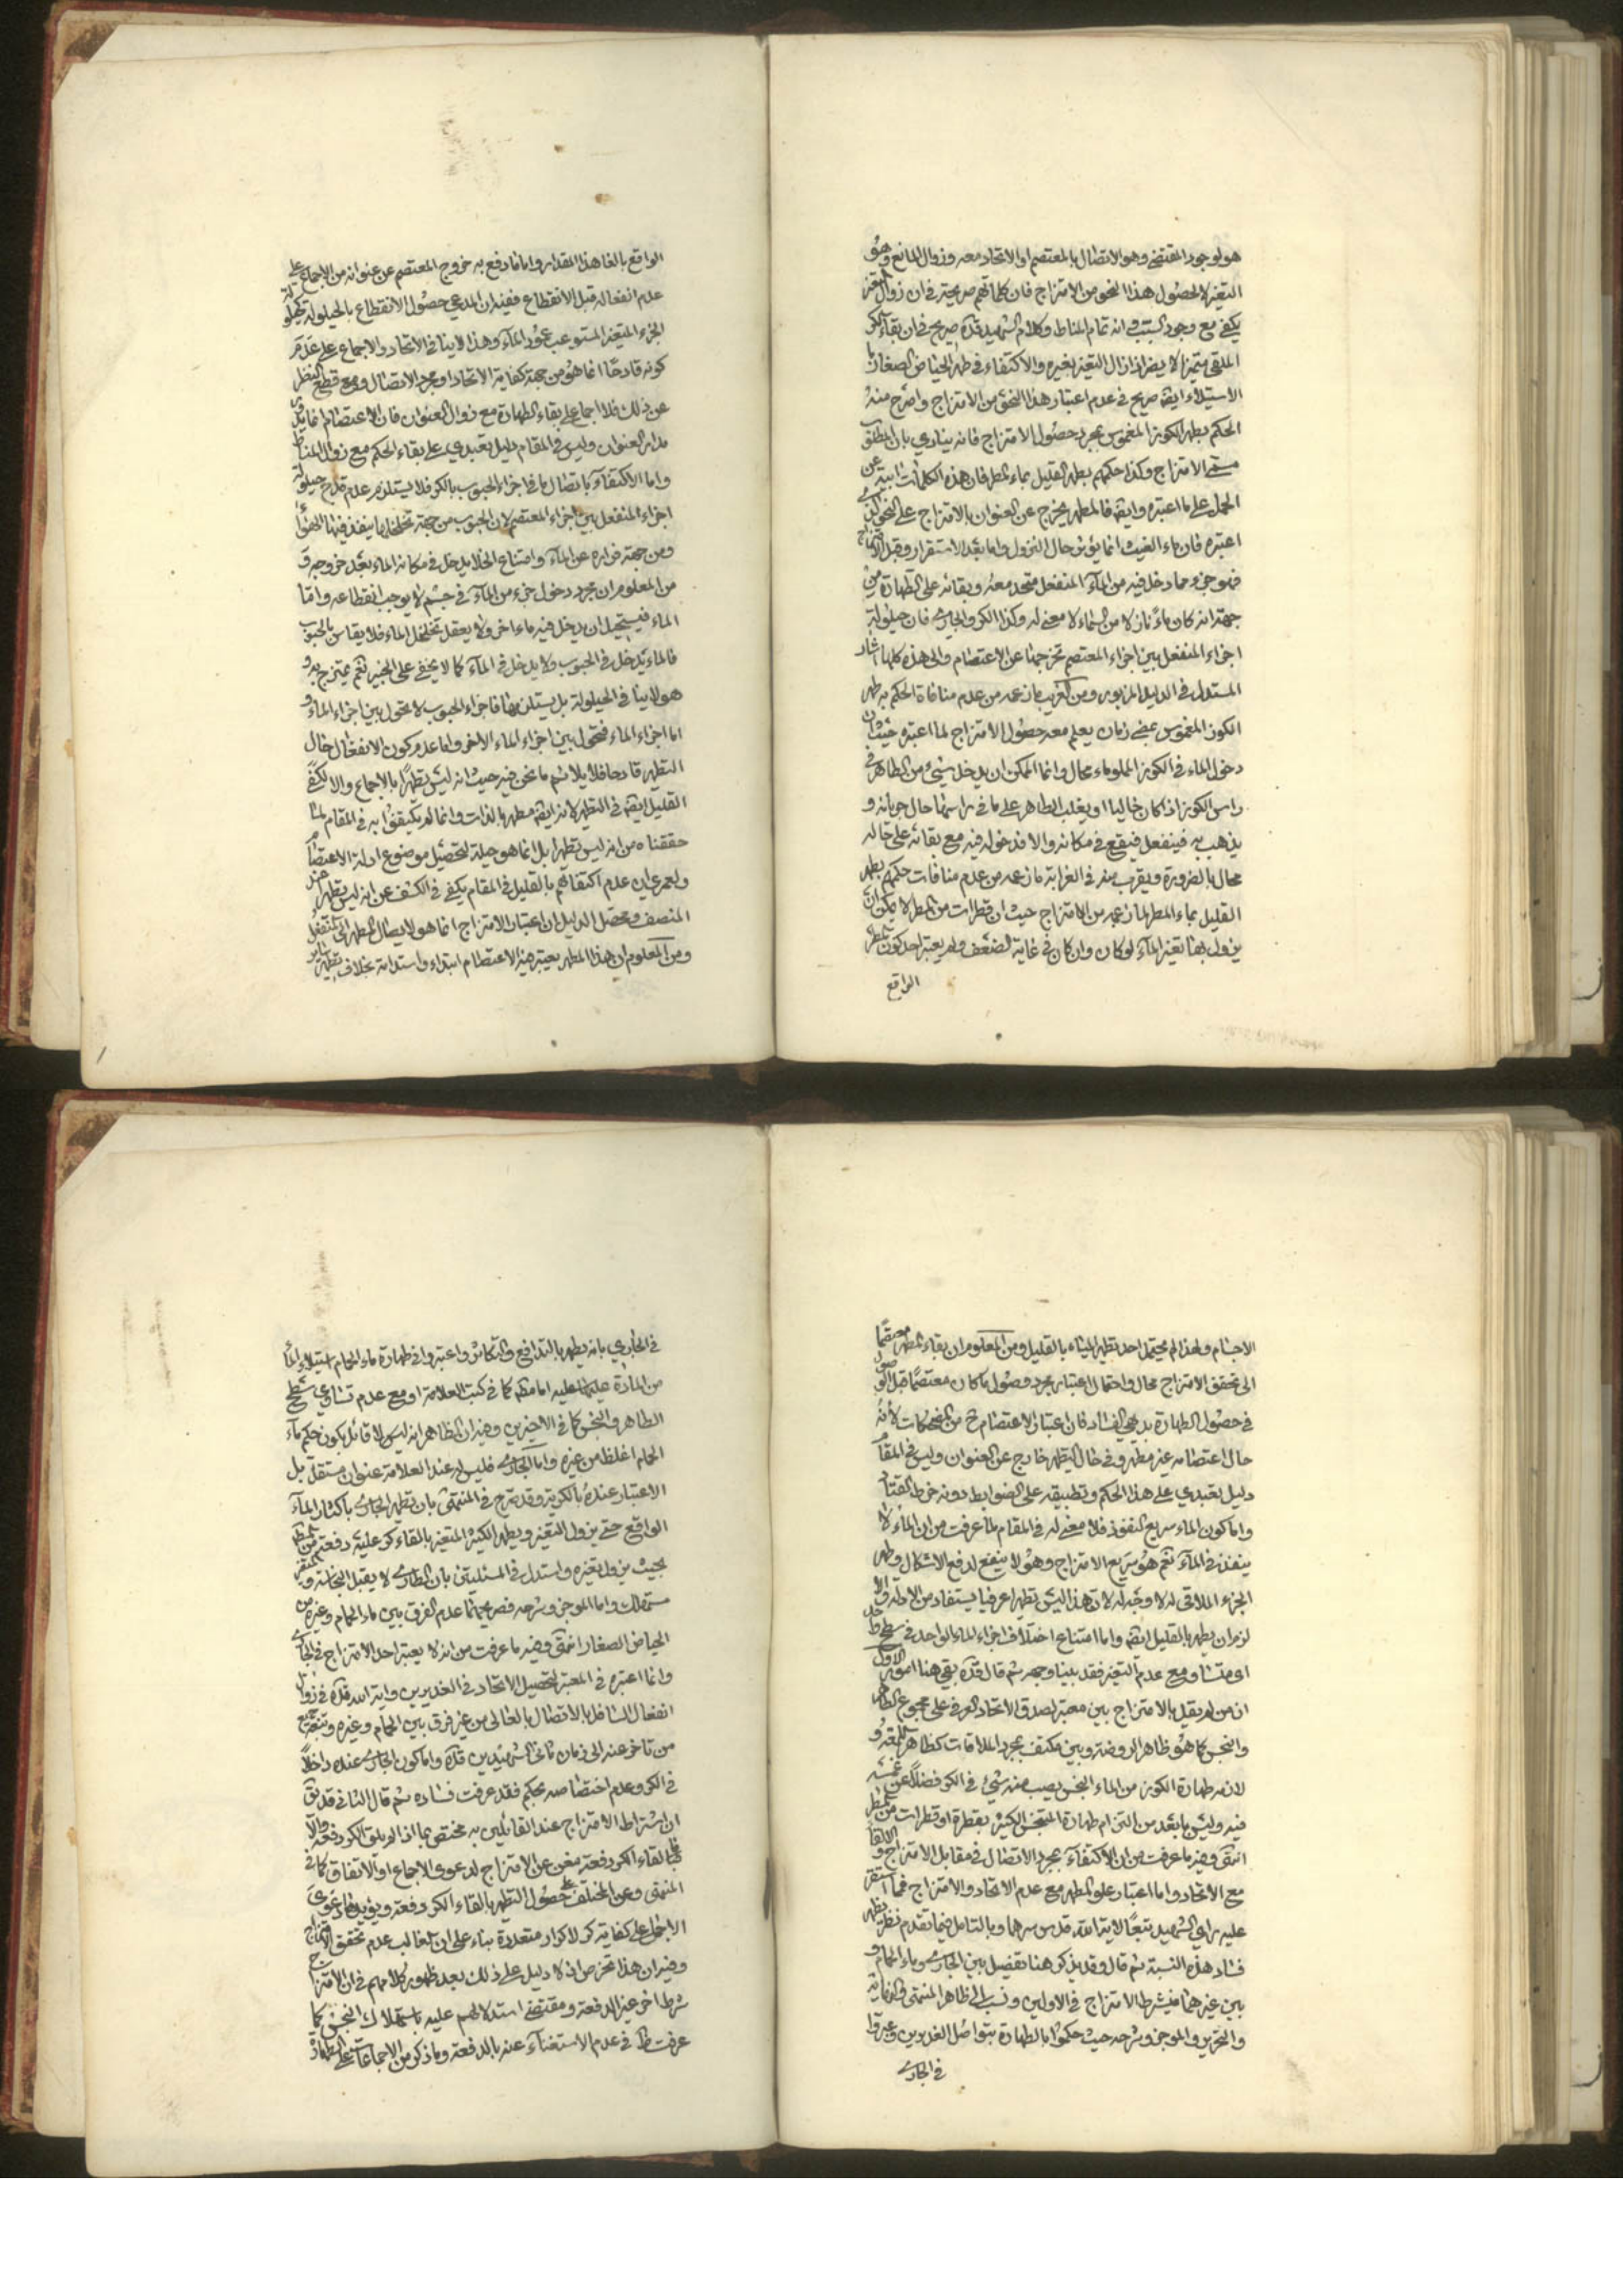 هو لوجود المقتضي وهو الاتصال بالمعتصم او الاتحاد معه وزوال المانع وهو
التغير لا لحصول هذا النحو من الامتزاج فان كلماتهم صريحة في ان زوال التغير
يكفي مع وجود السبب في انه تمام المناط وكلام الشهيد قده صريح في ان بقاء الكر
الملقى متميزا لا يضر اذا زال التغير بغيره والاكتفاء في طهر الحياض الصغار با
الاستيلاء ايضا صريح في عدم اعتبار هذا النحو من الامتزاج واصرح منه
الحكم بطهر الكوز المغموس بمجرد حصول الامتزاج فانه ينادي بان المطلق
مسمى الامتزاج وكذا حكمهم بطهر القليل بماء المطر فان هذه الكلمات ابية عن
الحمل على ما اعتبره وايضا فالمطهر يخرج عن العنوان بالامتزاج على النحو الذي
اعتبره فان ماء الغيث انما يؤثر حال النزول واما بعد الاستقرار وقبل الامتزاج
فهو جزء مما دخل فيه من الماء المنفعل متحد معه وبقائه على الطهارة من
جهة انه كان ماء نازلا من السماء لا معنى له وكذا الكر والجاري فان حيلولة
اجزاء المنفعل بين اجزاء المعتصم تخرجها عن الاعتصام والى هذه كلها اشار
المستدل في الدليل المزبور ومن الغريب ما زعمه من عدم منافاة الحكم به طهر
الكوز المغموس بمضي زمان يعلم معه حصول الامتزاج لما اعتبره حيث ان
دخول الماء في الكوز المملو ماء محال وانما الممكن ان يدخل شيء من الطاهر في
راس الكوز اذا كان خاليا او يغلب الطاهر على ما في راسها حال جريانه و
يذهب به فينفعل فيقع في مكانه والا فدخوله فيه مع بقائه على حاله
محال بالضرورة ويقرب منه في الغرابة ما زعمه من عدم منافات حكمهم بطهر
القليل بماء المطر لما زعمه من الامتزاج حيث ان قطرات من المطر لا يمكن ان
يزول بها تغير الماء لو كان وان كان في غاية الضعف ولم يعتبر احد كون المطر
الواقع
الواقع بالغا هذا المقدار واما ما دفع به خروج المعتصم عن عنوانه من الاجماع على
عدم انفعاله قبل الانقطاع ففيه ان المدعي حصول الانقطاع بالحيلولة كحيلولة
الجزء المتغير المستوعب عمود الماء وهذا لا ينافي الاتحاد والاجماع على عدم
كونه قادحا انما هو من جهة كفاية الاتحاد او مجرد الاتصال ومع قطع النظر
عن ذلك فلا اجماع على بقاء الطهارة مع زوال العنوان فان الاعتصام انما يدور
مدار العنوان وليس في المقام دليل تعبدي على بقاء الحكم مع زوال المناط
واما الاكتفاء باتصال ما في اجزاء الحبوب بالكر فلا يستلزم عدم قدح حيلولة
اجزاء المنفعل بين اجزاء المعتصم لان الحبوب من جهة تخلخلها ينفذ فيها الهواء
ومن جهة فراره عن الماء وامتناع الخلا يدخل في مكانه الماء بعد خروجه و
من المعلوم ان مجرد دخول جزء من الماء في جسم لا يوجب انقطاعه واما
الماء فيستحيل ان يدخل فيه ماء اخر ولا يعقل تخلخل الماء فلا يقاس بالحبوب
فالماء يدخل في الحبوب ولا يدخل في الماء كما لا يخفى على الخبير نعم يمتزج به و
هو لا ينافي الحيلولة بل يستلزمها فاجزاء الحبوب لا تحول بين اجزاء الماء و
اما اجزاء الماء فتحول بين اجزاء الماء الاخر واما عدم كون الانفعال حال
التطهر قادحا فلا يلائم ما نحن فيه حيث انه ليس تطهرا بالاجماع والا لكفى
القليل ايضا في التطهير لانه ايضا مطهر بالذات وانما لم يكتفوا به في المقام لما
حققناه من انه ليس تطهرا بل انما هو حيلة لتحصيل موضوع ادلة الاعتصام
ولعمري ان عدم اكتفائهم بالقليل في المقام يكفي في الكشف عن انه ليس تطهرا عند
المنصف ومحصل الدليل ان اعتبار الامتزاج انما هو لايصال المطهر الى المنفعل
ومن المعلوم ان هذا المطهر يعتبر فيه الاعتصام ابتداء واستدامة بخلاف تطهير ساير
الاجسام ولهذا لم يحتمل احد تطهير المياه بالقليل ومن المعلوم ان بقاء المطهر معتصما
الى تحقق الامتزاج محال واحتمال اعتبار مجرد وصول ما كان معتصما قبل الوصول
في حصول الطهارة بديهي الفساد فان اعتبار الاعتصام ح من المضحكات لانه
حال اعتصامه غير مطهر وفي حال التطهر خارج عن العنوان وليس في المقام
دليل تعبدي على هذا الحكم وتطبيقه على الضوابط دونه خرط القتاد
واما كون الماء سريع النفوذ فلا معنى له في المقام لما عرفت من ان الماء لا
ينفذ في الماء نعم هو سريع الامتزاج وهو لا ينفع لدفع الاشكال وطهر
الجزء الملاقى له لا وجه له لان هذا ليس تطهرا عرفيا يستفاد من الادلة والا
لزم ان يطهر بالقليل ايضا واما امتناع اختلاف اجزاء الماء الواحد في سطح واحد
اى متساو مع عدم التغير فقد بينا وجهه ثم قال قده بقي هنا امور الاول
ان من لم يقل بالامتزاج بين معتبر لصدق الاتحاد العرفي على مجموع الطاهر
والنجس كما هو ظاهر الروضة وبين مكتف بمجرد الملاقات كظاهر اللمعة و
لازمه طهارة الكوز من الماء النجس يصب منه شيء في الكر فضلا عن غمسه
فيه وليس بابعد من التزام طهارة المتنجس الكثير بقطرة او قطرات من المطر
انتهى وفيه ما عرفت من ان الاكتفاء بمجرد الاتصال في مقابل الامتزاج والالقاء
مع الاتحاد واما اعتبار علو المطهر مع عدم الاتحاد والامتزاج فمما استقر
عليه راي الشهيد تبعا لاية الله قدس سرهما وبالتامل فيما تقدم نظهر
فساد هذه النسبة ثم قال وقد يذكر هنا تفصيل بين الجاري وماء الحمام و
بين غيرهما فيشترط الامتزاج في الاولين ونسب الى ظاهر المنتهى والنهاية
والتحرير والموجز وشرحه حيث حكموا بالطهارة بتواصل الغديرين وعبروا
في الجاري
في الجاري بانه يطهر بالتدافع والتكاثر واعتبروا في طهارة ماء الحمام استيلاء الماء
من المادة عليه اما مط كما في كتب العلامة او مع عدم تساوي سطح
الطاهر والنجس كما في الاخيرين وفيه ان الظاهر انه ليس لا قائل بكون حكم ماء
الحمام اغلظ من غيره واما الجاري فليس له عند العلامة عنوان مستقل بل
الاعتبار عنده بالكرية وقد صرح في المنتهى بان تطهير الجاري باكثار الماء
الواقع حتى يزول التغير ويطهر الكثير المتغير بالقاء كر عليه دفعة من المطهر
بحيث يزول تغيره واستدل في المسئلتين بان الطاري لا يقبل النجاسة والمتغير
مستهلك واما الموجز وشرحه فصريحهما عدم الفرق بين ماء الحمام وغيره من
الحياض الصغار انتهى وفيه ما عرفت من انه لا يعتبر احد الامتزاج في الجاري
وانما اعتبره في المعتبر لتحصيل الاتحاد في الغديرين واية الله قده في زوال
انفعال السافل بالاتصال بالعالى من غير فرق بين الحمام وغيره وتبعه جميع
من تاخر عنه الى زمان ثانى الشهيدين قده واما كون الجاري عنده داخلا
في الكر وعدم اختصاصه بحكم فقد عرفت فساده ثم قال الثاني قد يق
ان اشتراط الامتزاج عند القائلين به مختص بما اذا لم يلق الكر دفعة والا
فالقاء الكر دفعة مغن عن الامتزاج لدعوى الاجماع او الاتفاق كما في
المنتهى وعن المختلف على حصول التطهير بالقاء الكر دفعة ويؤيدها دعوى
الاجماع على كفاية كر لاكرار متعددة بناء على ان الغالب عدم تحقق الامتزاج
وفيه ان هذا تخرص اذ لا دليل على ذلك بعد ظهور كلامهم في ان الامتزاج
شرط اخر غير الدفعة ومقتضى استدلالهم عليه باستهلاك النجس كما
عرفت ظ في عدم الاستغناء عنه بالدفعة وما ذكر من الاجماعات على الطهارة